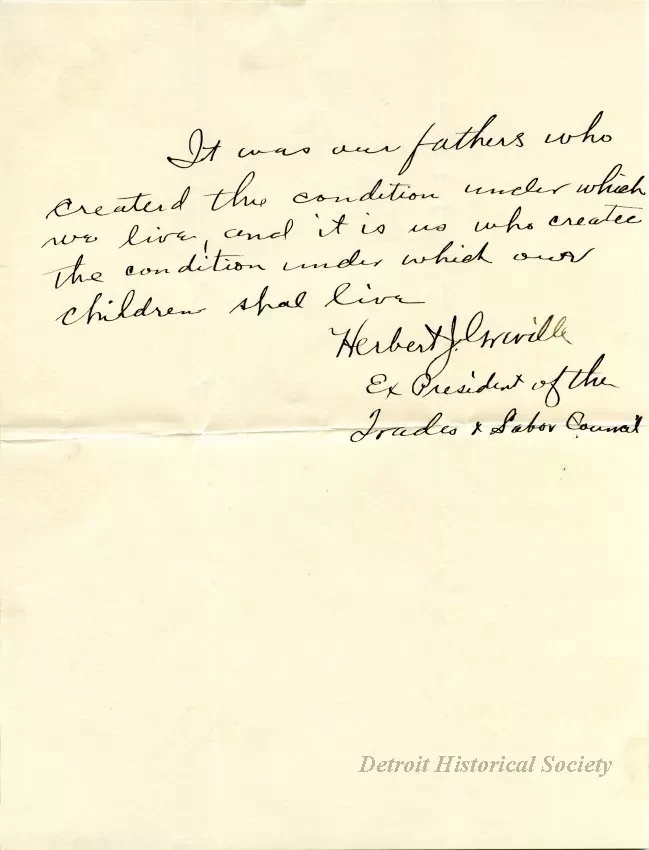 It was our fathers who
createrd the condition under which
we live, and it is us who createe
the condition under which our
children shal live
Herbert J.
Ex President of the
Trades & Labor Council
Detroit Historical Society